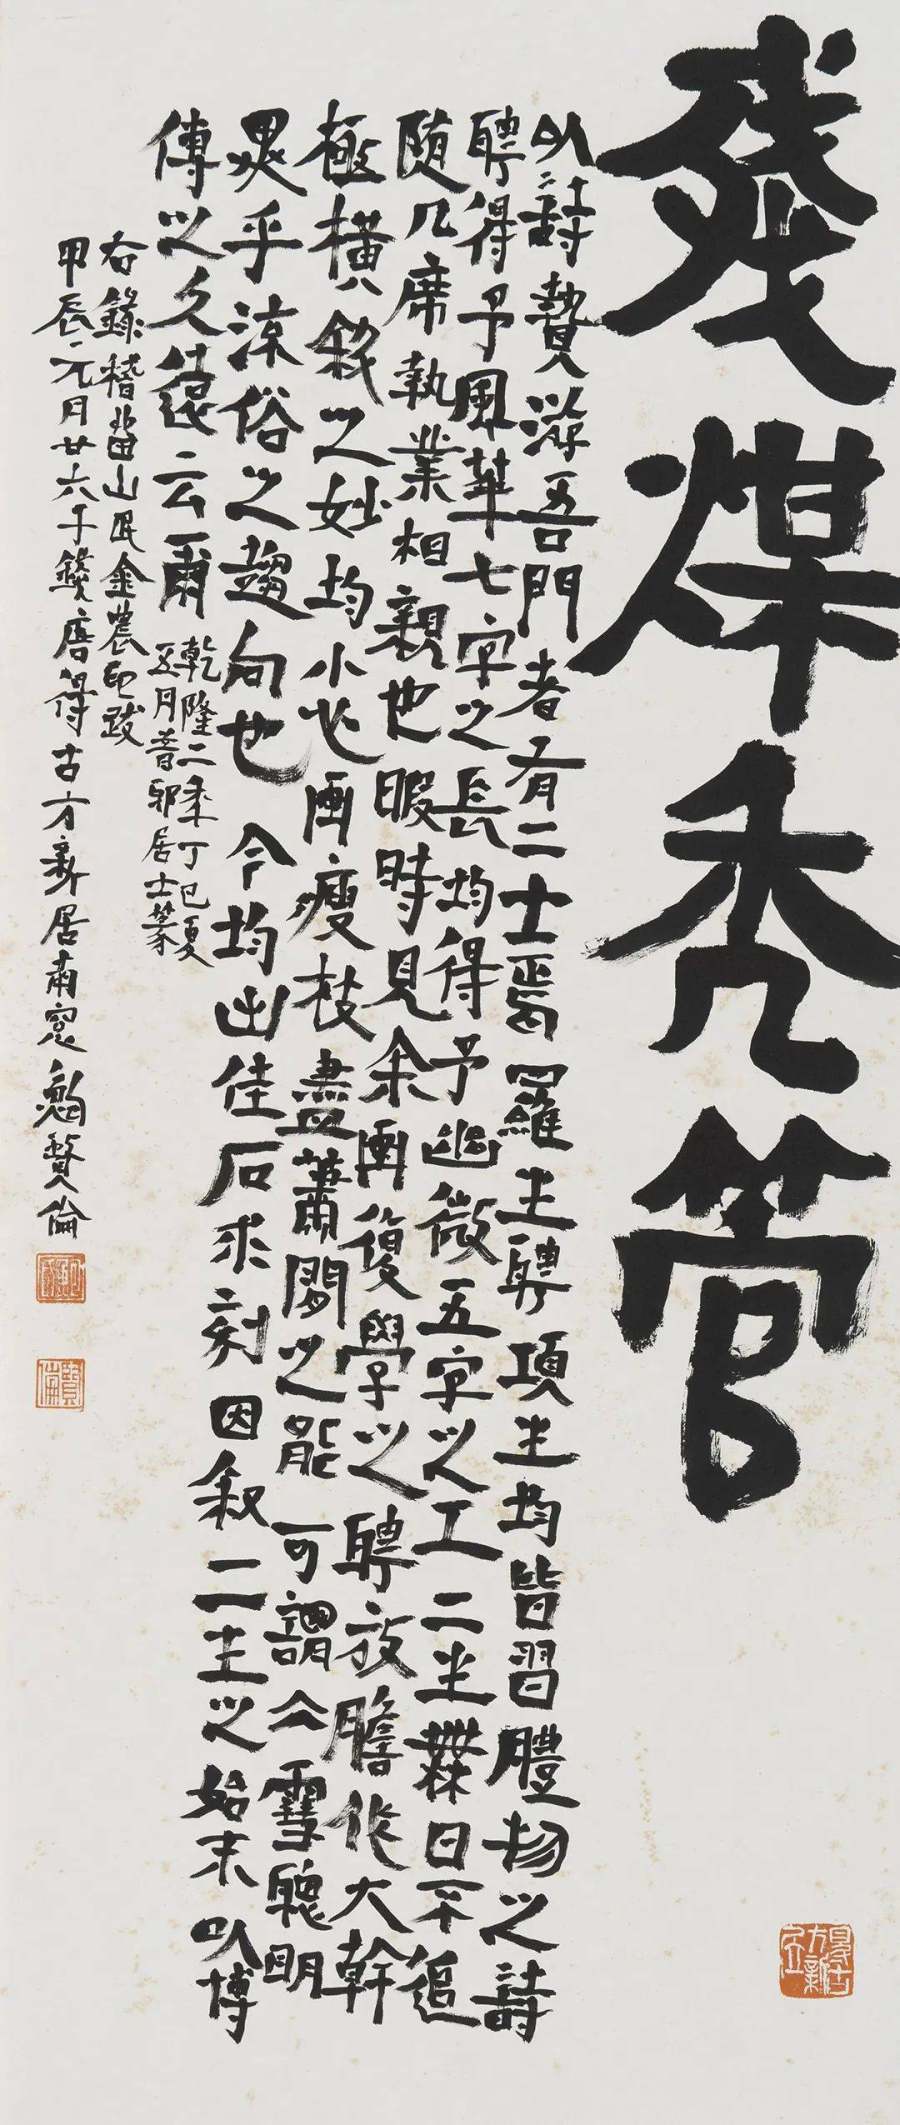 殘煤禿管
以詩贄游吾門者有二士焉羅生聘項生均皆習體物之詩
聘得予風華七字之長均得予幽微五字之工二生無日不追
随几席執業相親也暇時見余畫復學之聘放膽作大幹
極橫斜之妙均小心畫瘦枝盡蕭閒之能可謂公雪聰明
異乎流俗之趨向也今均出佳石求刻因叙二生之始末以博
傳之久遠云爾
乾隆二年丁巳夏
五月昔邪居士篆
右錄稽留山民金農印跋
甲辰元月廿六于錢唐得古方新居南窗 魏贊倫